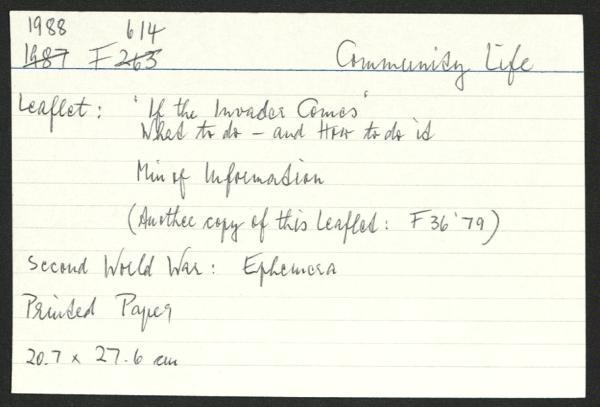 1988 614
1987 F 263 Community Life
Leaflet: 'If the Invader Comes'
What to do - and How to do it
Min of Information
(Another copy of this Leaflet: F 36 '79)
Second World War: Ephemera
Printed Paper
20.7 x 27.6 cm